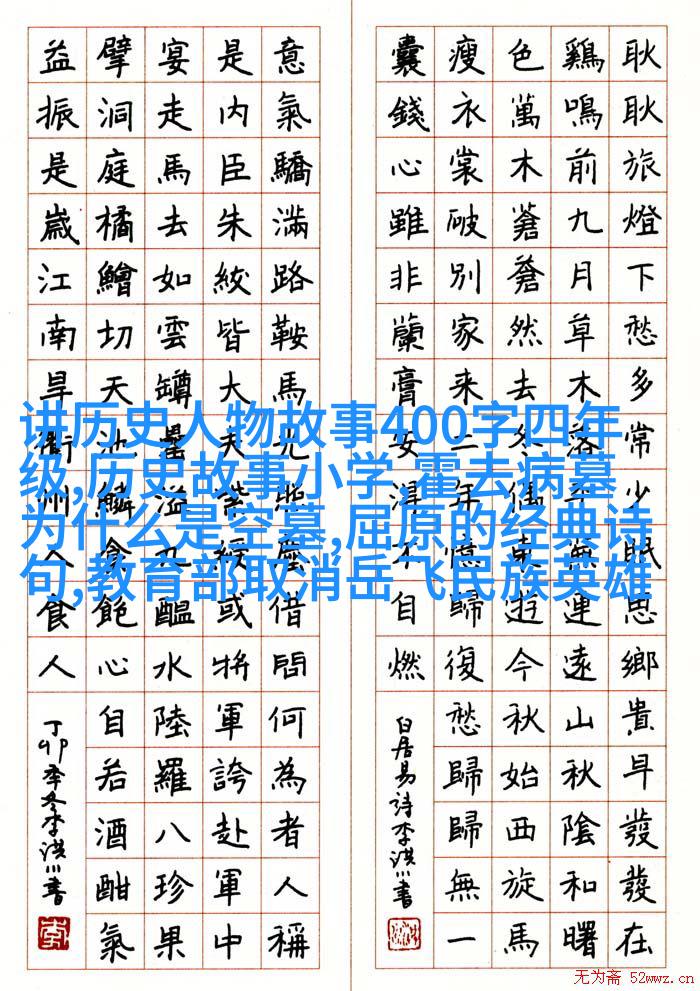 耿耿旅燈下愁多常少眠思鄉貴早發發在
鷄鳴前九月草木落平蕪連遠山秋陰和曙
色萬木蒼蒼然去冬偶東遊今秋始西旋馬
瘦衣裳破別家來二年憶歸復愁歸歸無一
囊錢心雖非蘭膏安得不自燃
白居易詩李洪川書
意氣驕滿路鞍馬光照塵借問何為者人稱
是內臣朱紱皆大夫紫綬或將軍誇赴軍中
宴走馬去如雲罇罍溢九醞水陸羅八珍果
擘洞庭橘鱠切天池鱗食飽心自若酒酣氣
益振是歲江南旱衢州人食人
丁卯季冬李洪川書
讲历史人物故事400字四年
级,历史故事小学,霍去病墓
为什么是空墓,屈原的经典诗
句,教育部取消岳飞民族英雄
无为斋 52wwz.cn